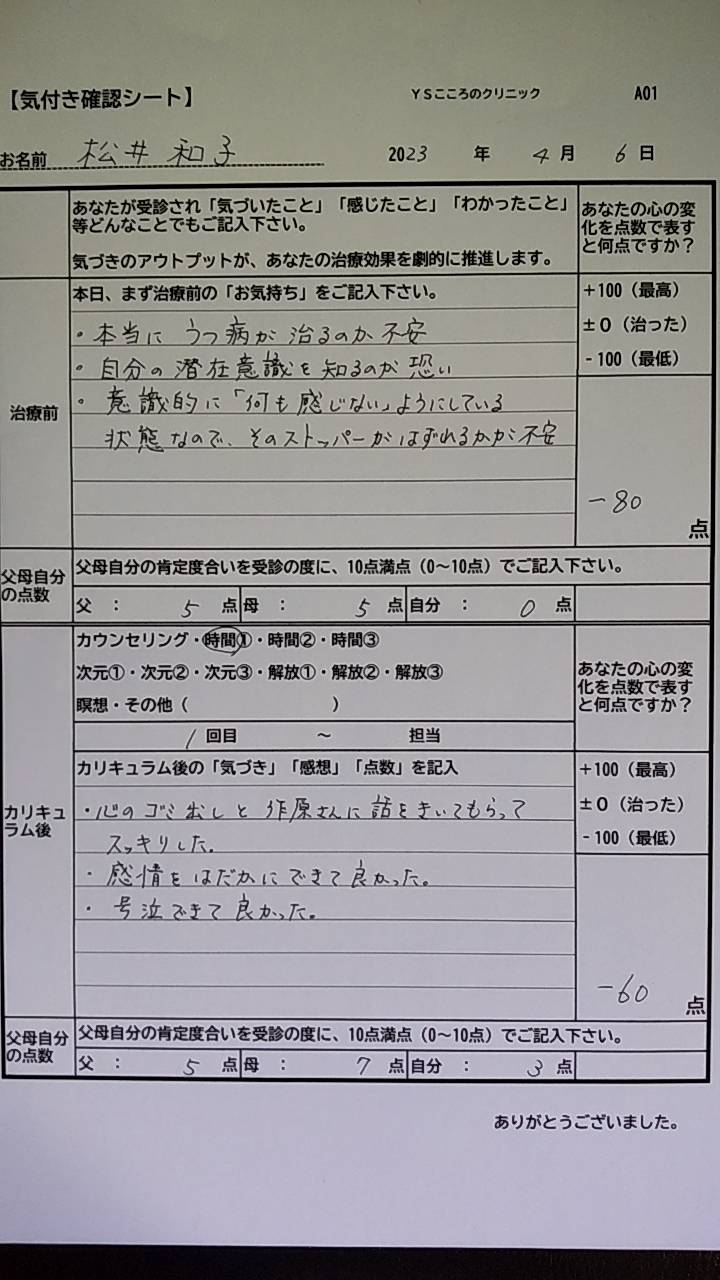 【気付き確認シート】 YSこころのクリニック A01
お名前 松井 和子 2023 年 4 月 6 日
あなたが受診され「気づいたこと」「感じたこと」「わかったこと」
等どんなことでもご記入下さい。
気づきのアウトプットが、あなたの治療効果を劇的に推進します。
あなたの心の変
化を点数で表す
と何点ですか？
治療前
本日、まず治療前の「お気持ち」をご記入下さい。
・本当に うつ病が 治るのか 不安
・自分の 潜在意識を 知るのが 恐い
・意識的に「何も感じない」ようにしている
状態なので、そのストッパーがはずれるかが不安
+100（最高）
±0（治った）
-100（最低）
-80 点
父母自分
の点数
父母自分の肯定度合いを受診の度に、10点満点（0～10点）でご記入下さい。
父 ： 5 点 母 ： 5 点 自分 ： 0 点
カリキュ
ラム後
カウンセリング・時間①・時間②・時間③
次元①・次元②・次元③・解放①・解放②・解放③
瞑想・その他（ ）
1 回目 ～ 担当
あなたの心の変
化を点数で表す
と何点ですか？
カリキュラム後の「気づき」「感想」「点数」を記入
・心の ゴミ出しと 作原さんに 話をきいてもらって
スッキリした。
・感情を はだかに できて 良かった。
・号泣できて 良かった。
+100（最高）
±0（治った）
-100（最低）
-60 点
父母自分
の点数
父母自分の肯定度合いを受診の度に、10点満点（0～10点）でご記入下さい。
父 ： 5 点 母 ： 7 点 自分 ： 3 点
ありがとうございました。